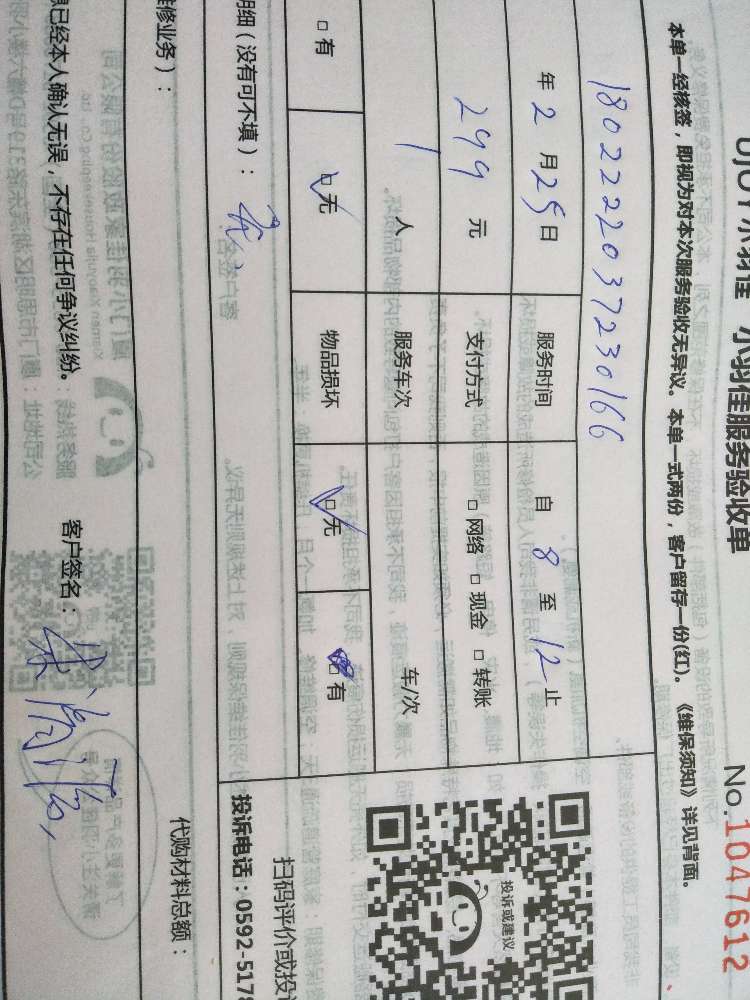 UJOY小羽佳 小羽佳服务验收单
No.1047612
本单一经核签，即视为对本次服务验收无异议。本单一式两份，客户留存一份(红)。《维保须知》详见背面。
1802222037230166
年 2 月 25 日 服务时间 自 8 至 12 止
299 元 支付方式 □ 网络 □ 现金 □ 转账
1 人 服务车次 车/次
□ 有 □ 无 物品损坏 □ 无 □ 有
明细（没有可不填）：无
投诉或建议
扫码评价或投诉
投诉电话：0592-5178
修业务）：
代购材料总额：
已经本人确认无误，不存在任何争议纠纷。 客户签名：